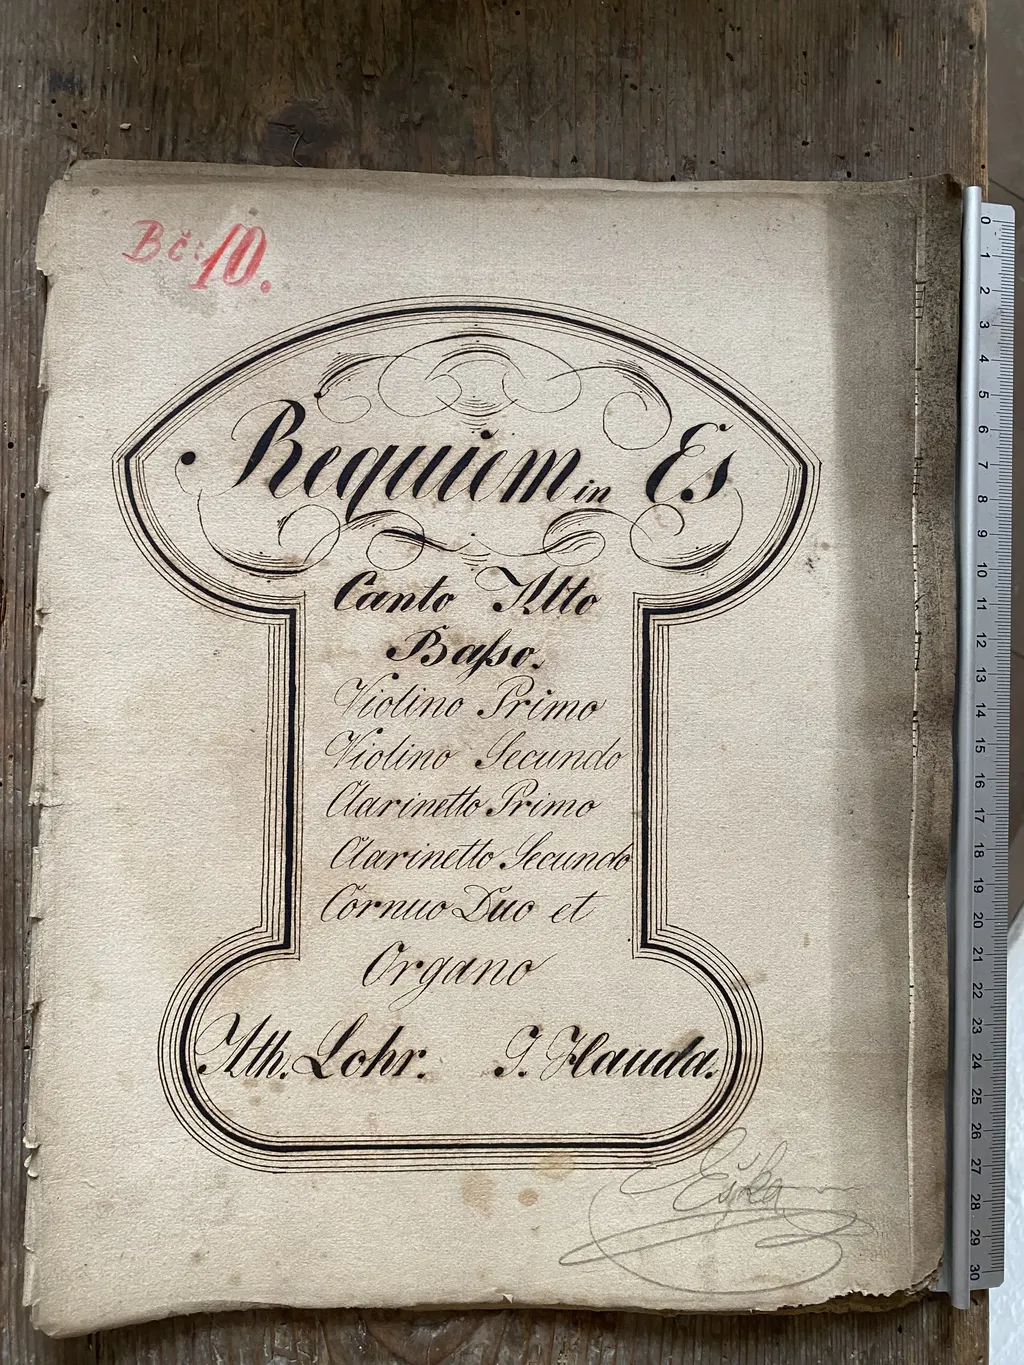 Bč: 10.
Requiem in Es
Canto Alto
Baſso.
Violino Primo
Violino Secundo
Clarinetto Primo
Clarinetto Secundo
Cornuo Duo et
Organo
Ath. Lohr. J. Hauda.
0 1 2 3 4 5 6 7 8 9 10 11 12 13 14 15 16 17 18 19 20 21 22 23 24 25 26 27 28 29 30